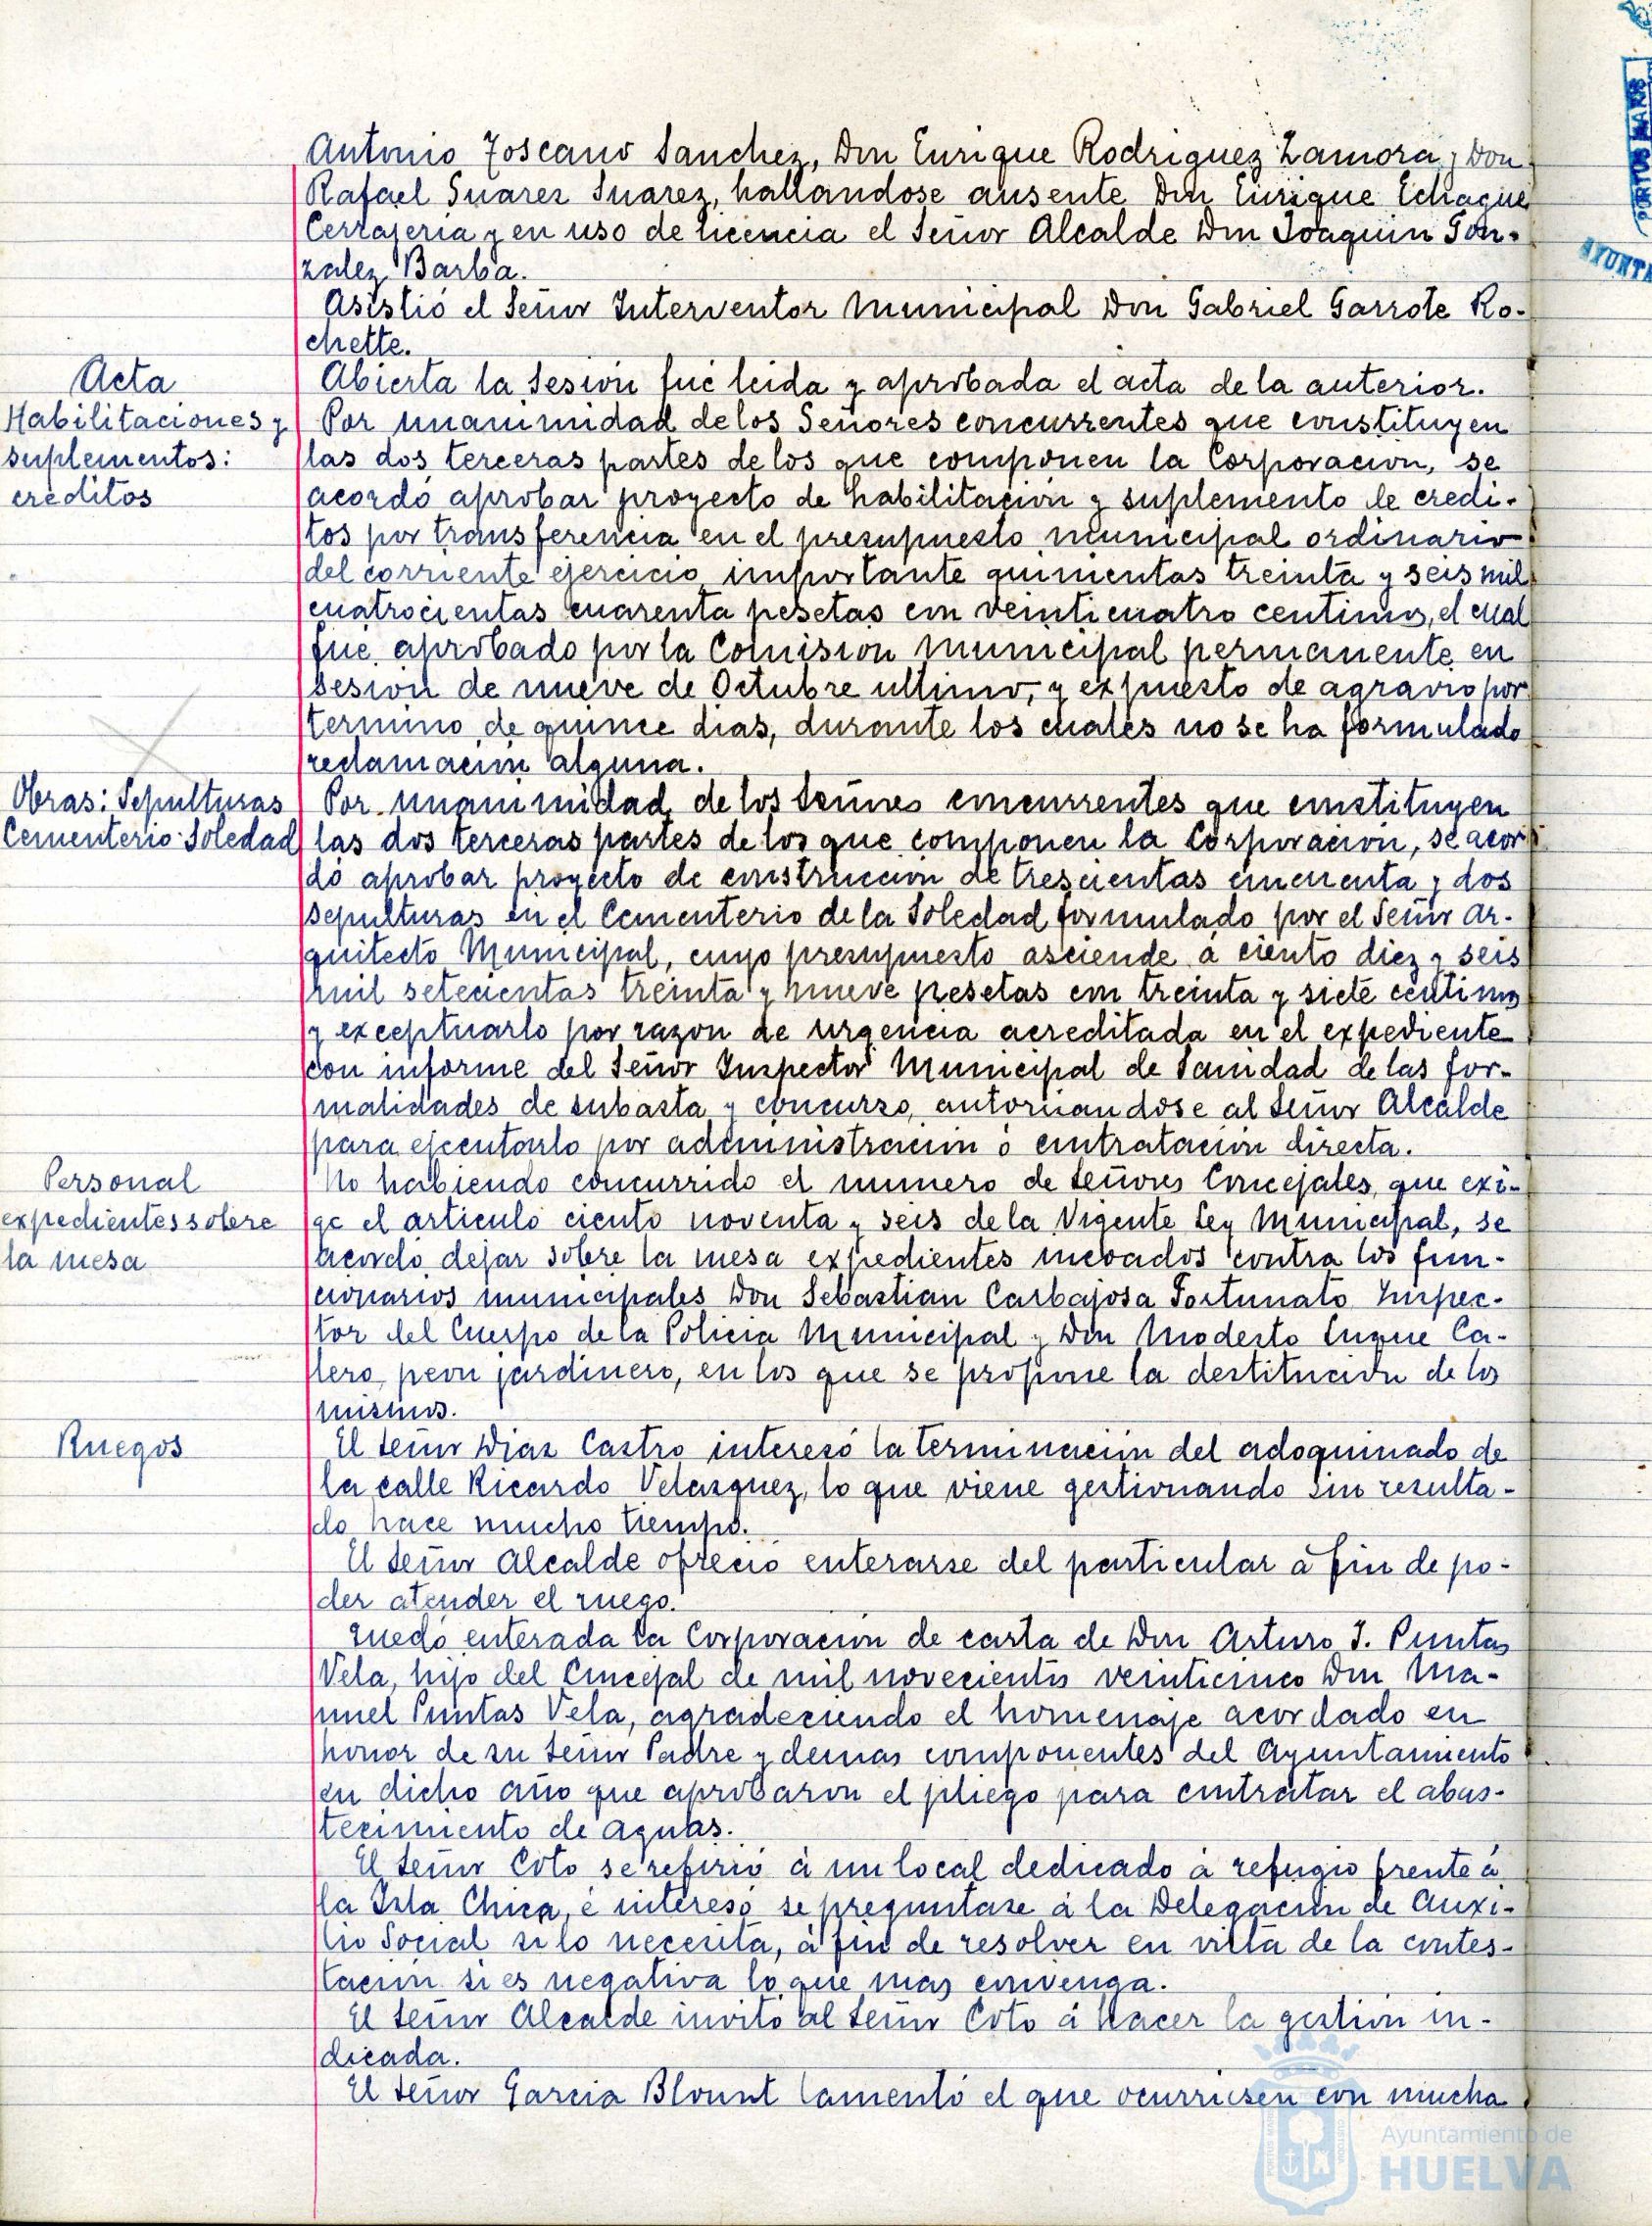 Antonio Toscano Sanchez, Don Enrique Rodriguez Zamora y Don
Rafael Suarez Suarez, hallandose ausente Don Enrique Echague
Cerrajeria y en uso de licencia el Señor Alcalde Don Joaquin Gon-
zalez Barba.
Asistió el Señor Interventor Municipal Don Gabriel Garrote Ro-
chette.
Acta
Abierta la sesión fué leida y aprobada el acta de la anterior.
Habilitaciones y
suplementos:
creditos
Por unanimidad de los Señores concurrentes que constituyen
las dos terceras partes de los que componen la Corporacion, se
acordó aprobar proyecto de habilitación y suplemento de credi-
tos por transferencia en el presupuesto municipal ordinario
del corriente ejercicio importante quinientas treinta y seis mil
cuatrocientas cuarenta pesetas con veinticuatro centimos, el cual
fue aprobado por la Comision Municipal permanente en
sesion de nueve de Octubre ultimo, y expuesto de agravio por
termino de quince dias, durante los cuales no se ha formulado
reclamación alguna.
Obras: Sepulturas
Cementerio Soledad
Por unanimidad de los Señores concurrentes que constituyen
las dos terceras partes de los que componen la Corporación, se acor
dó aprobar proyecto de construcción de trescientas cincuenta y dos
sepulturas en el Cementerio de la Soledad formulado por el Señor Ar-
quitecto Municipal, cuyo presupuesto asciende á ciento diez y seis
mil setecientas treinta y nueve pesetas con treinta y siete centimos
y exceptuarlo por razon de urgencia acreditada en el expediente
con informe del Señor Inspector Municipal de Sanidad de las for-
malidades de subasta y concurso, autorizandose al Señor Alcalde
para ejecutarlo por administracion ó contratación directa.
Personal
expedientes sobre
la mesa
No habiendo concurrido el numero de Señores Concejales que exi-
ge el articulo ciento noventa y seis de la Vigente Ley Municipal, se
acordó dejar sobre la mesa expedientes incoados contra los fun-
cionarios municipales Don Sebastian Carbajosa Fortunato Inspec-
tor del Cuerpo de la Policia Municipal y Don Modesto Luque Ca-
lero, peon jardinero, en los que se propone la destitucion de los
mismos.
Ruegos
El Señor Diaz Castro interesó la terminación del adoquinado de
la calle Ricardo Velazquez, lo que viene gestionando sin resulta-
do hace mucho tiempo.
El Señor Alcalde ofreció enterarse del particular á fin de po-
der atender el ruego.
Quedó enterada la Corporación de carta de Don Arturo J. Puntas
Vela, hijo del Concejal de mil novecientos veinticinco Don Ma-
nuel Puntas Vela, agradeciendo el homenaje acordado en
honor de su Señor Padre y demas componentes del Ayuntamiento
en dicho año que aprobaron el pliego para contratar el abas-
tecimiento de aguas.
El Señor Coto se refirió á un local dedicado á refugio frente á
la Isla Chica, é interesó se preguntase á la Delegación de Auxi-
lio Social si lo necesita, á fin de resolver en vista de la contes-
tación si es negativa lo que mas convenga.
El Señor Alcalde invitó al Señor Coto á hacer la gestión in-
dicada.
El Señor Garcia Blount lamentó el que ocurriesen con mucha
Ayuntamiento de
HUELVA